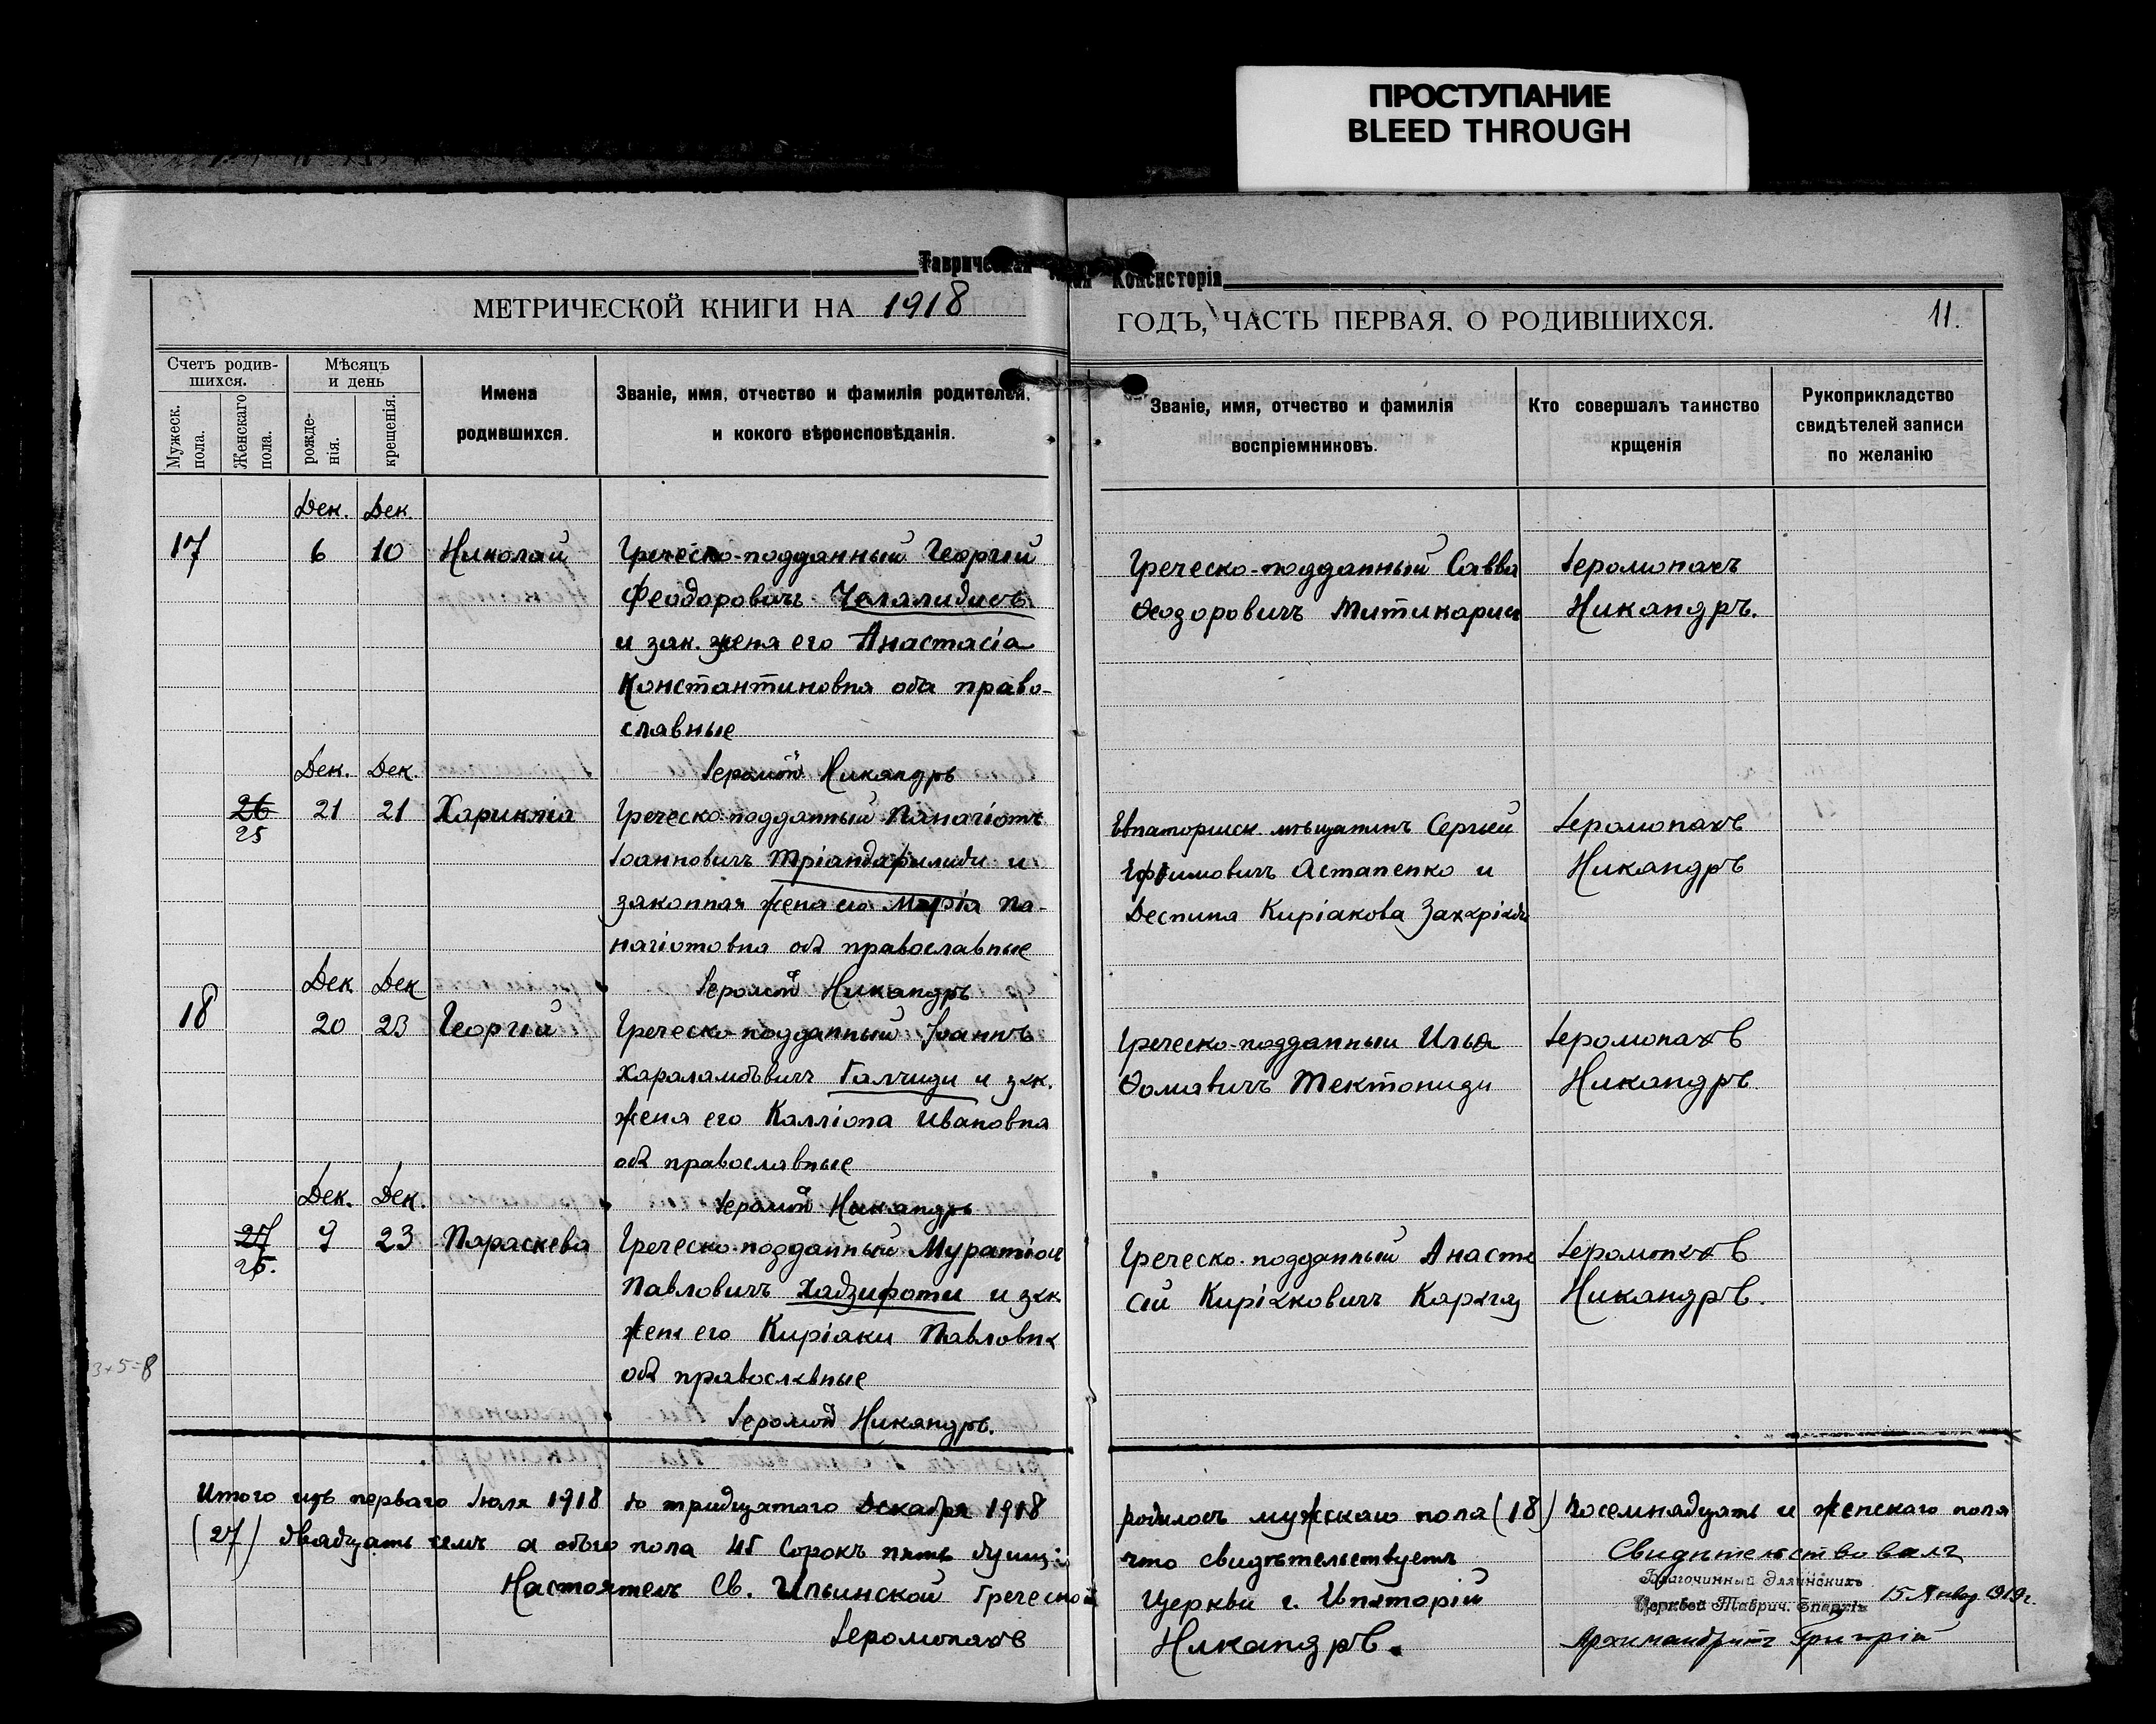 ПРОСТУПАНИЕ
BLEED THROUGH
Консисторія
МЕТРИЧЕСКОЙ КНИГИ НА 1918
ГОДЪ, ЧАСТЬ ПЕРВАЯ. О РОДИВШИХСЯ.
11.
Счетъ родив-
шихся.
Мужеск.
пола.
Женскаго
пола.
Мѣсяцъ
и день
рожде-
нія.
крещенія.
Имена
родившихся.
Званіе, имя, отчество и фамилія родителей,
и кокого вѣроисповѣданія.
Званіе, имя, отчество и фамилія
воспріемниковъ.
Кто совершалъ таинство
крщенія
Рукоприкладство
свидѣтелей записи
по желанію
Дек. Дек.
17 6 10 Николай
Греческо-подданный Георгій
Феодоровичъ Челалидисъ
и зак. жена его Анастасіа
Константиновна оба право-
славные
Іеромон Никандръ
Греческо-подданный Савва
Ѳеодоровичъ
Іеромонахъ
Никандръ.
Дек. Дек.
26
25
21 21 Хариклія
Греческо-подданный Панагіотъ
Іоанновичъ Тріандафилиди и
законная жена его Марія Па-
нагіотовна оба православные
Іеромон Никандръ
Евпаторійск. мѣщанинъ Сергѣй
Астапенко и
Деспина Киріакова
Іеромонахъ
Никандръ
Дек Дек
18 20 23 Георгій
Греческо-подданный Іоаннъ
Хараламбовичъ Галчиди и зак.
жена его Калліопа Ивановна
оба православные
Іеромон Никандръ
Греческо-подданный Илья
Ѳомавичъ Тектониди
Іеромонахъ
Никандръ
Дек. Дек.
27
26.
9 23 Параскева
Греческо-подданный
Павловичъ Хадзифоти и зак
жена его Киріаки Павловна
оба православные
Іеромон Никандръ.
Греческо-подданный Анаста
сій Киріаковичъ
Іеромонахъ
Никандръ.
3+5=8
Итого перваго Іюля 1918 до тридцатого Декабря 1918
родилось мужскаго пола (18) восемнадцать и женскаго пола
(27) двадцать семь а обѣго пола 45 Сорокъ пять душъ
что свидѣтельствуетъ
Настоятель Св. Ильинской Греческой
Церкви г.
Іеромонахъ
Никандръ.
Свидѣтельствовалъ
Благочинный Эллинскихъ
Церквей Таврич. Епархіи
15 Январ 1919 г.
Архимандритъ Григорій